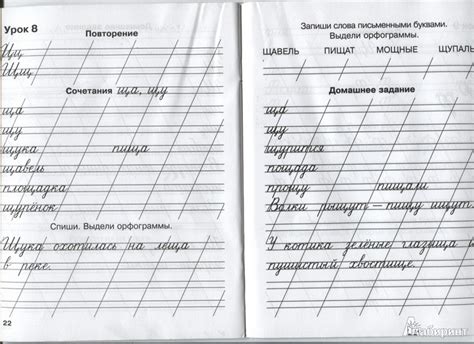 Урок 8
Повторение
Щщ
Щщ
Сочетания ща, щу
ща
щу
щука пища
щавель
площадка
щурёнок
Спиши. Выдели орфограммы.
Щука охотилась на леща
в реке.
22
Запиши слова письменными буквами.
Выдели орфограммы.
ЩАВЕЛЬ ПИЩАТ МОЩНЫЕ ЩУПАЛЬ
Домашнее задание
ща
щу
щурится
пощада
прощу пищали
Волки рыщут – пищу ищут.
У котика зелёные глазища и
пушистый хвостище.
Лабиринт